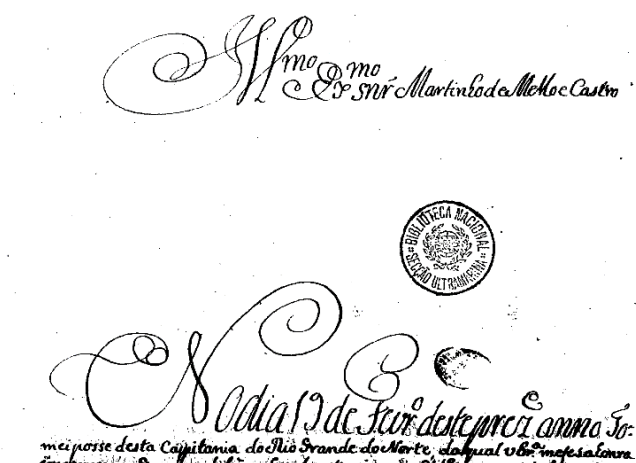 Ill.mo Ex.mo Snr Martinho de Mello e Castro
BIBLIOTECA NACIONAL
SECÇÃO ULTRAMARINA
No dia 19 de Fevr.o deste prez.e anno To-
mei posse desta Cappitania do Rio Grande do Norte, da qual